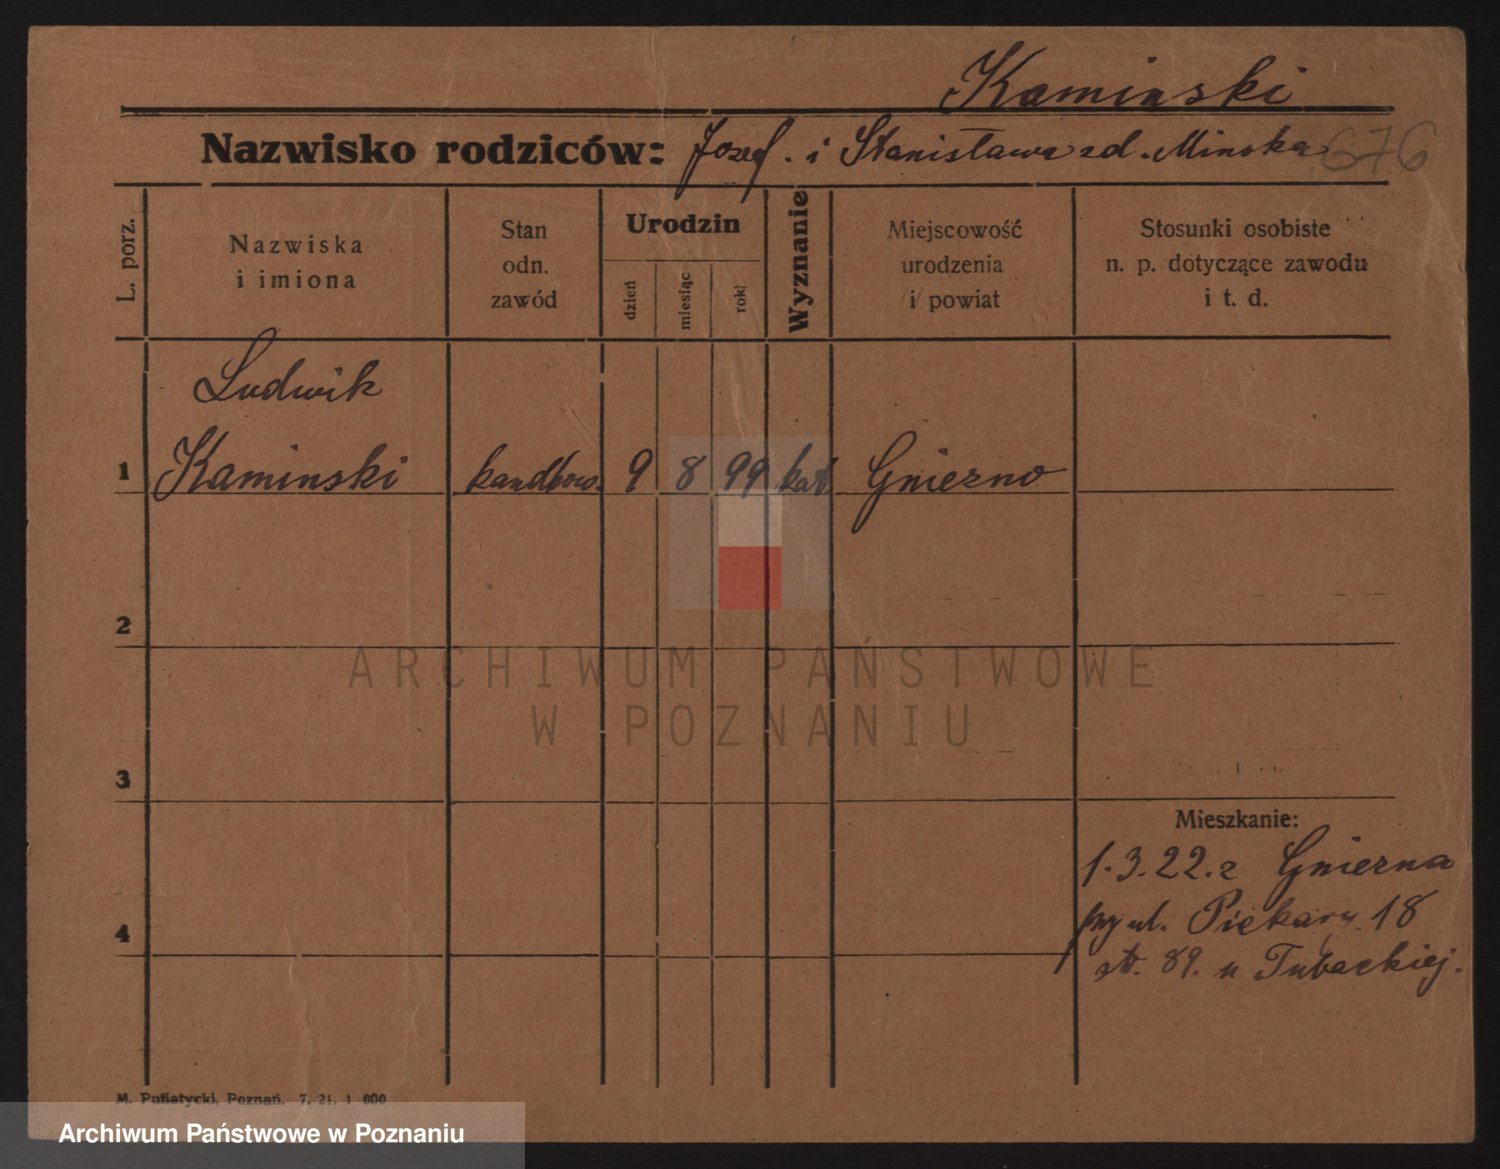 Kaminski
Nazwisko rodziców: Jozef. i Stanisława zd. Minska
676
L. porz.
Nazwiska
i imiona
Stan
odn.
zawód
Urodzin
dzień
miesiąc
rok
Wyznanie
Miejscowość
urodzenia
i powiat
Stosunki osobiste
n. p. dotyczące zawodu
i t. d.
Ludwik
1 Kaminski 9 8 99 kat Gniezno
2
3
4
Mieszkanie:
1.3.22. z Gniezna
przy ul. Piekary 18
str. 89. u Tubackiej.
M. Putiatycki, Poznań. 7. 21. 1 000
ARCHIWUM PAŃSTWOWE
W POZNANIU
Archiwum Państwowe w Poznaniu